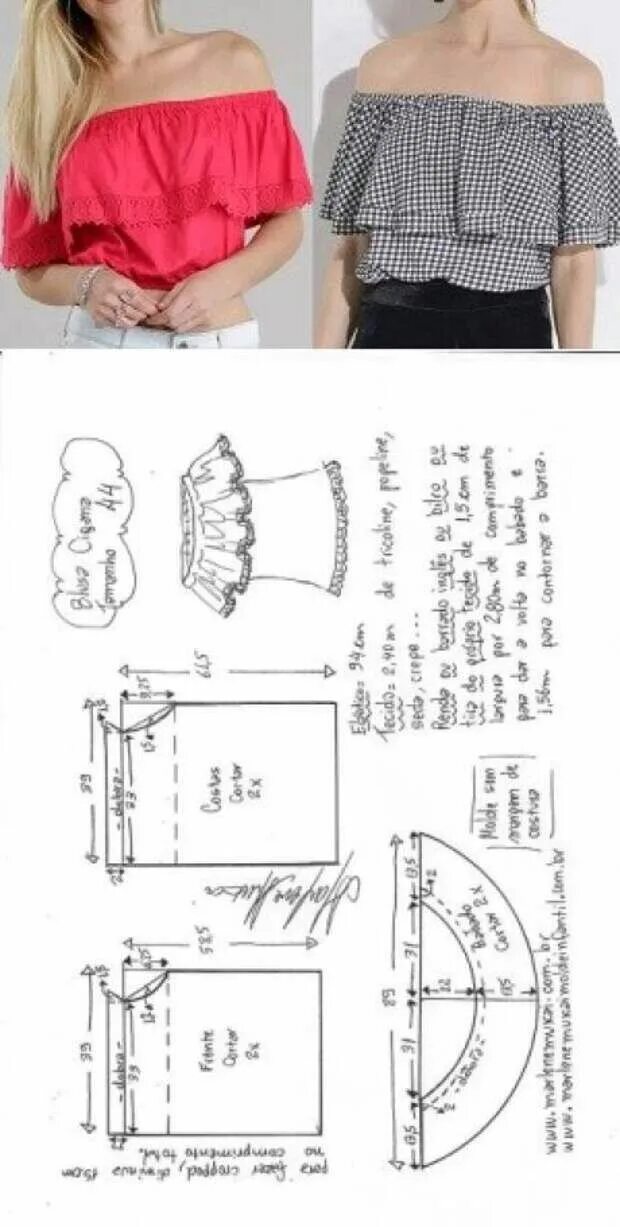 Blusa Cigana
Tamanho 44
Elástico= 94 cm
Tecido= 2,40m de tricoline, popeline,
seda, crepe...
Renda ou barrado inglês ou bico ou
tira do próprio tecido de 1,5 cm de
largura por 2,80m de comprimento
para dar a volta no babado e
1,56m para contornar a barra.
61,5
9,25
1,5
39
-dobra-
33
15
2
Costas
Cortar
2x
58,5
6,25
1,5
39
-dobra-
33
2
Frente
Cortar
2x
para fazer cropped, diminua 15cm
no comprimento total.
Molde sem
margem de
costura
89
13,5
31
31
13,5
2
2
22
13,5
-dobra-
Babado
Cortar 2x
www.marlenemukai.com.br
www.marlenemukaimoldeinfantil.com.br